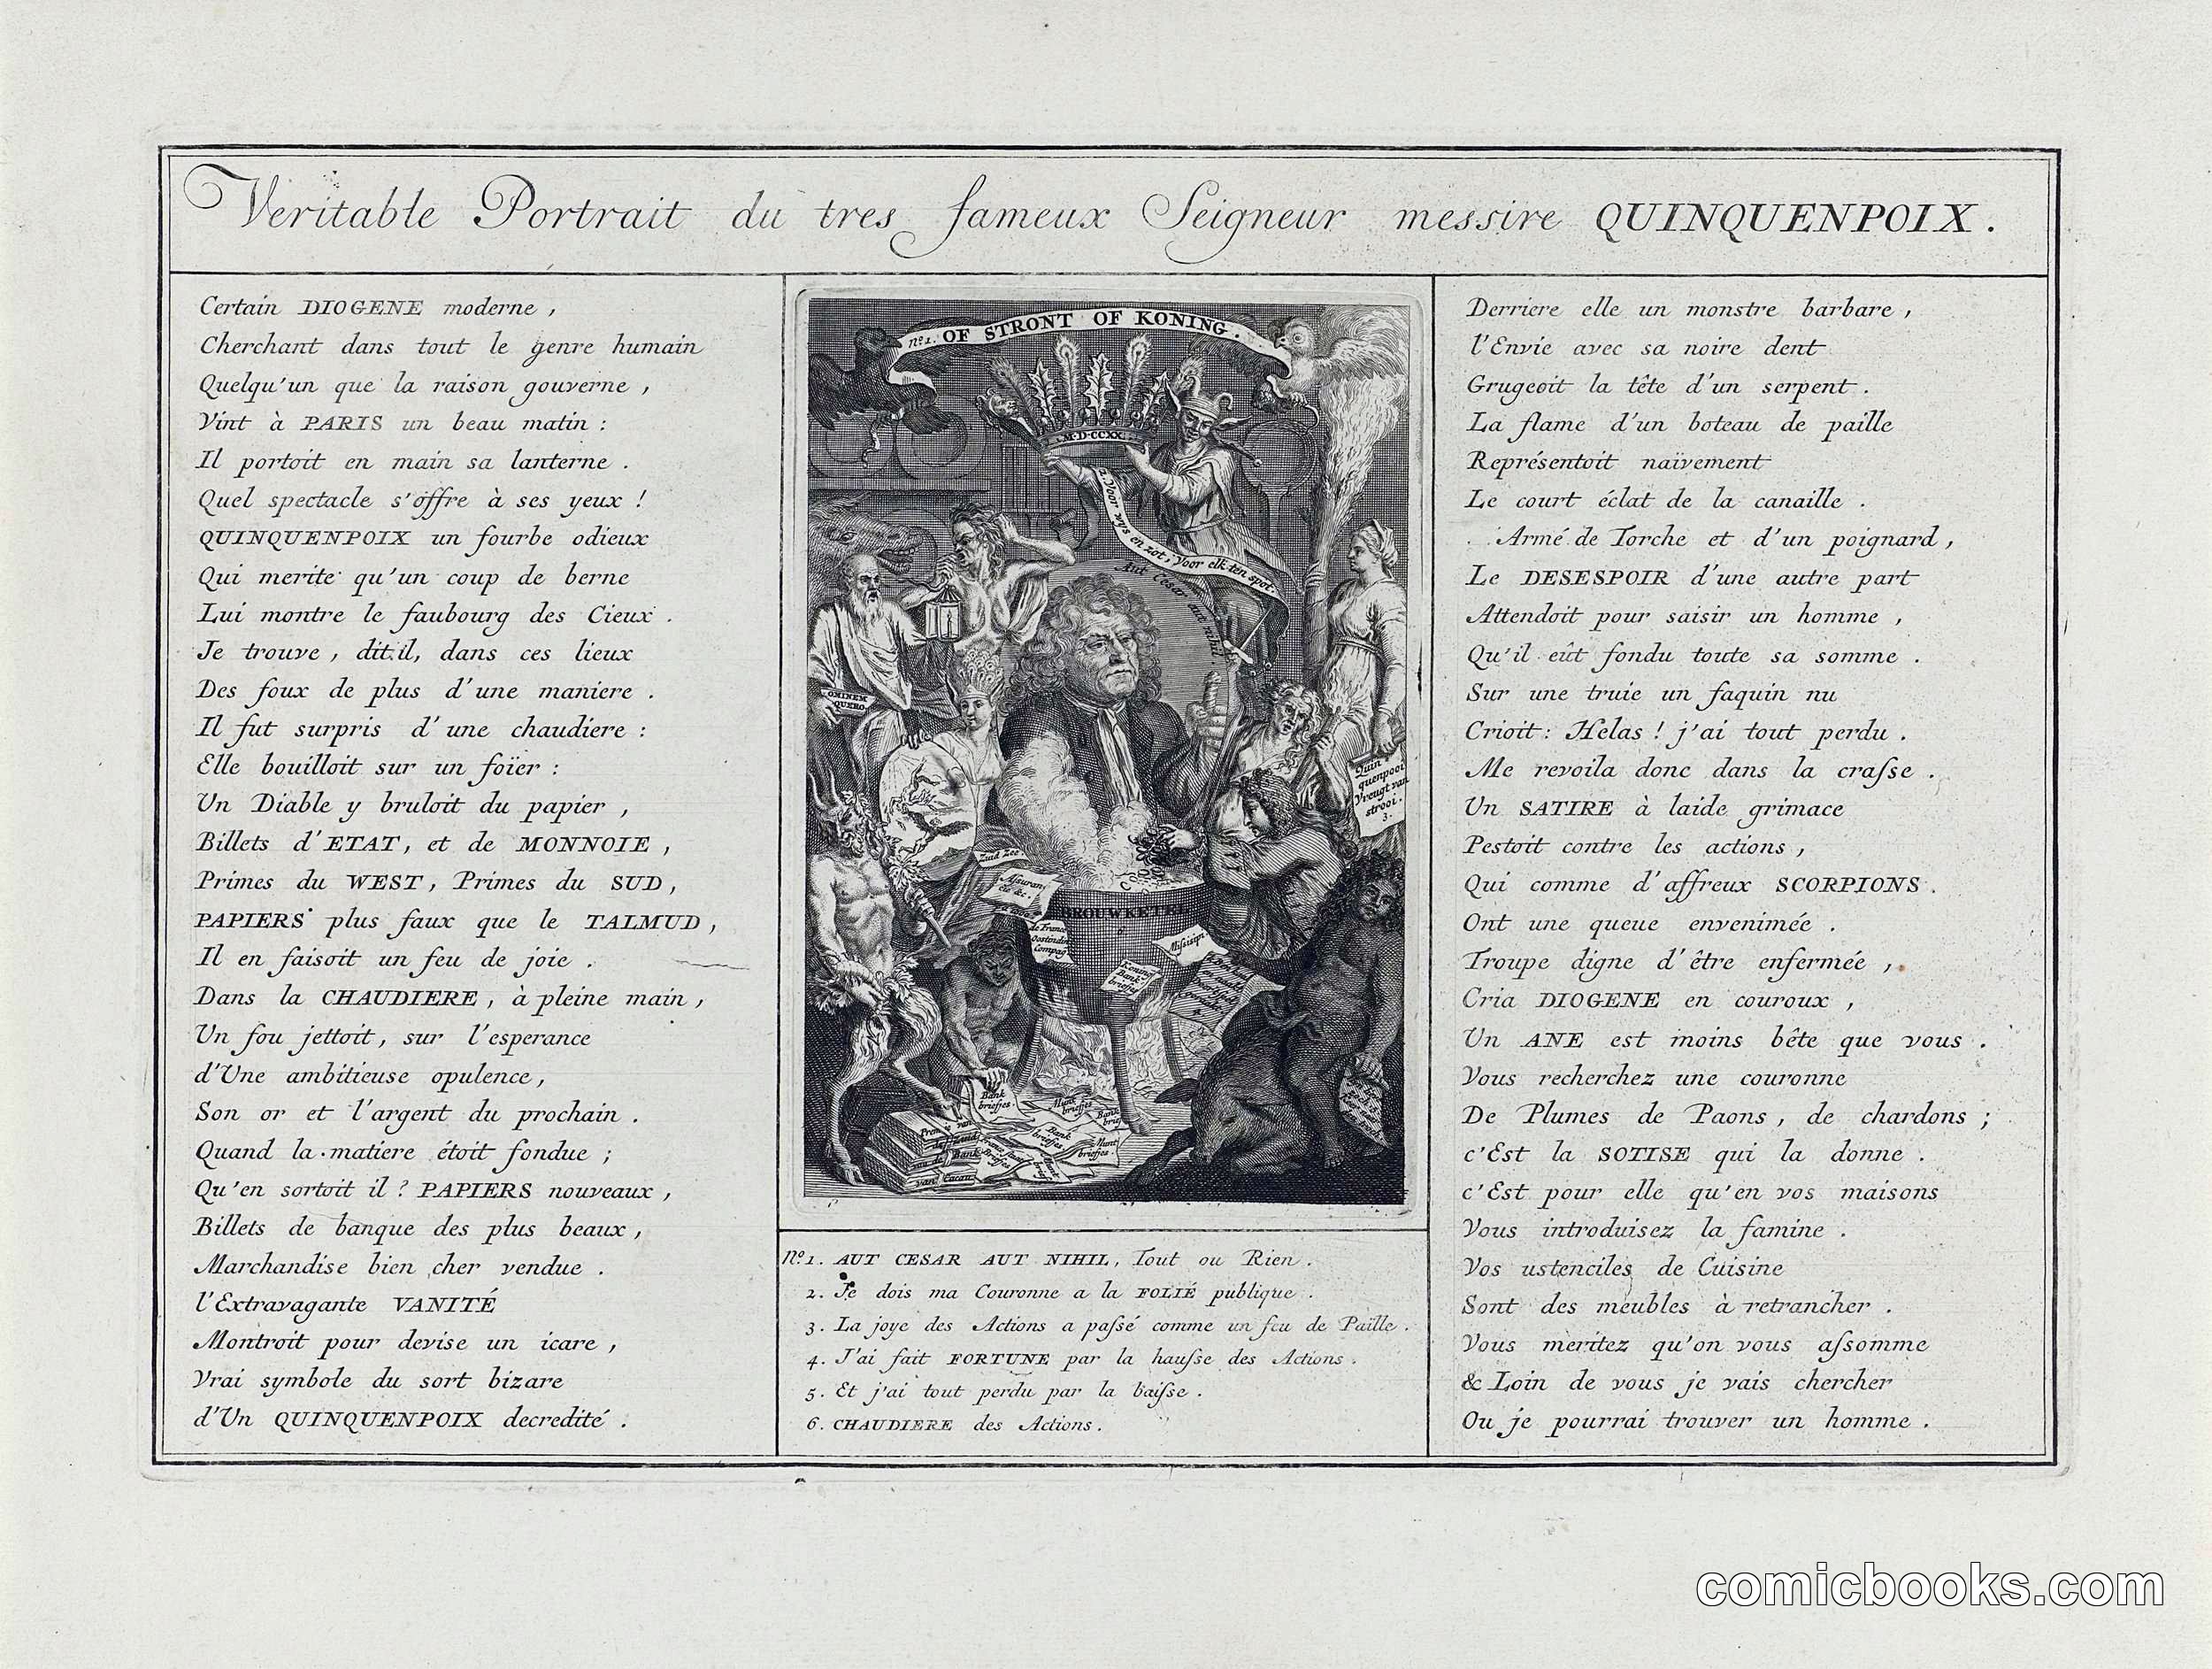 Veritable Portrait du tres fameux Seigneur messire QUINQUENPOIX.
Certain DIOGENE moderne,
Cherchant dans tout le genre humain
Quelqu'un que la raison gouverne,
Vint à PARIS un beau matin:
Il portoit en main sa lanterne.
Quel spectacle s'offre à ses yeux!
QUINQUENPOIX un fourbe odieux
Qui merite qu'un coup de berne
Lui montre le faubourg des Cieux.
Je trouve, dit il, dans ces lieux
Des foux de plus d'une maniere.
Il fut surpris d'une chaudiere:
Elle bouilloit sur un foïer:
Un Diable y bruloit du papier,
Billets d'ETAT, et de MONNOIE,
Primes du WEST, Primes du SUD,
PAPIERS plus faux que le TALMUD,
Il en faisoit un feu de joie.
Dans la CHAUDIERE, à pleine main,
Un fou jettoit, sur l'esperance
d'Une ambitieuse opulence,
Son or et l'argent du prochain.
Quand la matiere étoit fondue;
Qu'en sortoit il? PAPIERS nouveaux,
Billets de banque des plus beaux,
Marchandise bien cher vendue.
l'Extravagante VANITÉ
Montroit pour devise un icare,
Vrai symbole du sort bizare
d'Un QUINQUENPOIX decredité.
nº1. OF STRONT OF KONING.
M·D·CCXX.
2. Voor wijs en zot, Voor elk ten spot.
Aut Cesar aut nihil.
OMINEM
QUERO
Quin
quenpooix
Vreugt van
strooi.
3.
Zuid Zee
Assuran
tie &c.
de France
Oostindise
Compag
BROUWKETEL
6
Misisipi
Bank
briefjes
Bank
briefjes.
Munt
briefjes
Bank
brief
Bank
briefjes
Munt
briefjes.
van Cacau
Nº1. AUT CESAR AUT NIHIL, Tout ou Rien.
2. Je dois ma Couronne a la FOLIÉ publique.
3. La joye des Actions a passé comme un feu de Paille.
4. J'ai fait FORTUNE par la hausse des Actions.
5. Et j'ai tout perdu par la baisse.
6. CHAUDIERE des Actions.
Derriere elle un monstre barbare,
l'Envie avec sa noire dent
Grugeoit la tête d'un serpent.
La flame d'un boteau de paille
Représentoit naïvement
Le court éclat de la canaille.
Armé de Torche et d'un poignard,
Le DESESPOIR d'une autre part
Attendoit pour saisir un homme,
Qu'il eût fondu toute sa somme.
Sur une truie un faquin nu
Crioit: Helas! j'ai tout perdu.
Me revoila donc dans la crasse.
Un SATIRE à laide grimace
Pestoit contre les actions,
Qui comme d'affreux SCORPIONS.
Ont une queue envenimée.
Troupe digne d'être enfermée,
Cria DIOGENE en couroux,
Un ANE est moins bête que vous.
Vous recherchez une couronne
De Plumes de Paons, de chardons;
c'Est la SOTISE qui la donne.
c'Est pour elle qu'en vos maisons
Vous introduisez la famine.
Vos ustenciles de Cuisine
Sont des meubles à retrancher.
Vous meritez qu'on vous assomme
& Loin de vous je vais chercher
Ou je pourrai trouver un homme.
comicbooks.com